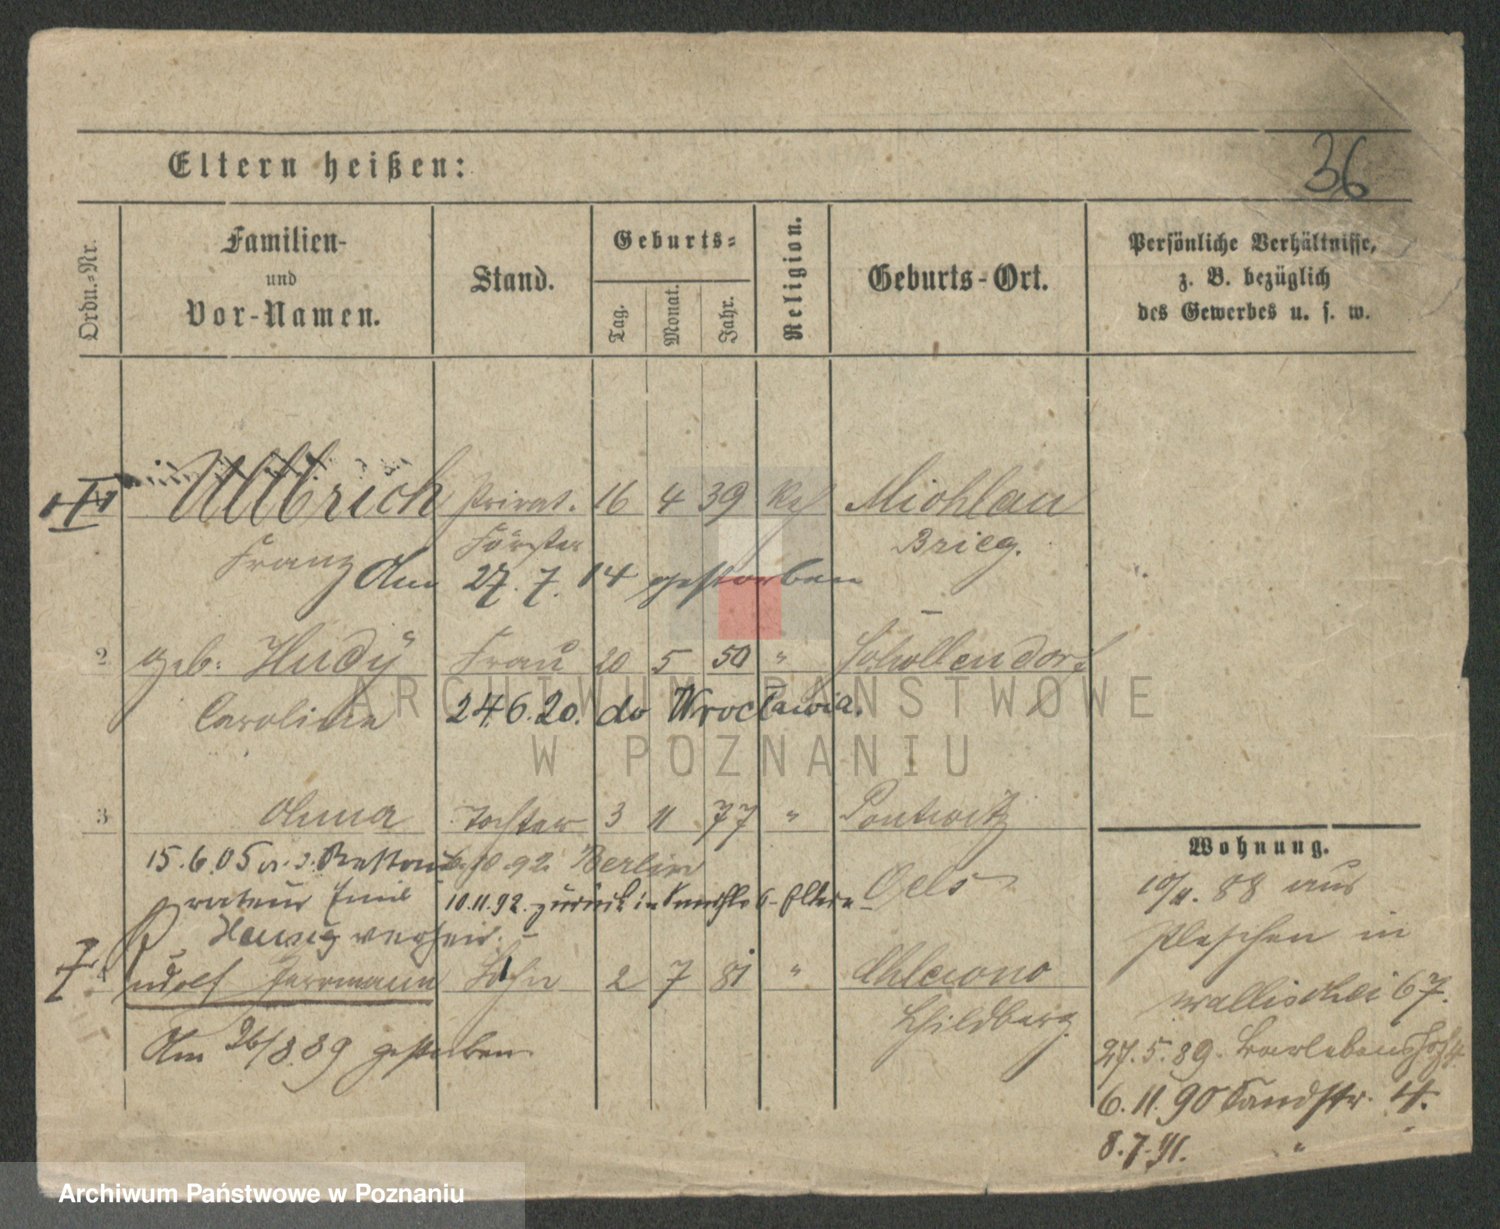 36
Eltern heißen:
Ordn.-Nr.
Familien-
und
Vor-Namen.
Stand.
Geburts-
Tag.
Monat.
Jahr.
Religion.
Geburts-Ort.
Persönliche Verhältnisse,
z. B. bezüglich
des Gewerbes u. s. w.
Ullbrich Privat. 16 4 39 Michlau
Förster Brieg.
Franz Am 27. 7. 14 gestorben
2 geb. Hudÿ Frau 20 5 50 " Schollendorf
Caroline 24.6.20. do Wrocławia.
3 Anna Tochter 3 11 77 " Pontwitz
Oels
15.6.05 6.10.92 Berlin
Emil 10.11.92. zurück Eltern
Rudolf Herrmann Sohn 2 7 81 "
Schildberg
Am 26/8.89 gestorben
Wohnung.
10/11. 88 aus
Pleschen in
Wallischei 67.
27.5.89.
6.11.90 Sandstr. 4.
8.7.91. "
ARCHIWUM PAŃSTWOWE
W POZNANIU
Archiwum Państwowe w Poznaniu